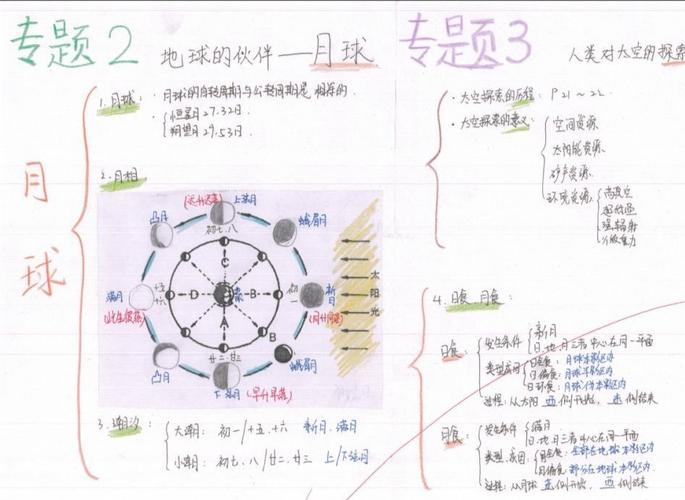 专题2 地球的伙伴——月球
月球
1.月球:
· 月球的自转周期与公转周期是相等的.
· 恒星月27.32日
朔望月29.53日.
2.月相
上弦月
凸月
初七、八
蛾眉月
满月
十五
十六
C
D
B
A
B
初一
新月
(同升同落)
太阳光
凸月
廿二、廿三
蛾眉月
下弦月
(早升早落)
3.潮汐
大潮: 初一/十五、十六 新月、满月
小潮: 初七、八/廿二、廿三 上/下弦月
专题3 人类对太空的探索
· 太空探索的历程: P21~22
· 太空探索的意义:
空间资源
太阳能资源
矿产资源
环境资源
高真空
强辐射
4.日食 月食:
日食:
发生条件
新月
日、地、月三者中心在同一平面
日全食: 月球本影区内
日偏食: 月球半影区内
日环食: 月球伪本影区内
过程: 从太阳 西 侧开始, 东 侧结束
月食:
发生条件
满月
日、地、月三者中心在同一平面
类型、成因
月全食: 全部在地球本影区内
月偏食: 部分在地球本影区内
过程: 从月球 东 侧开始, 西 侧结束